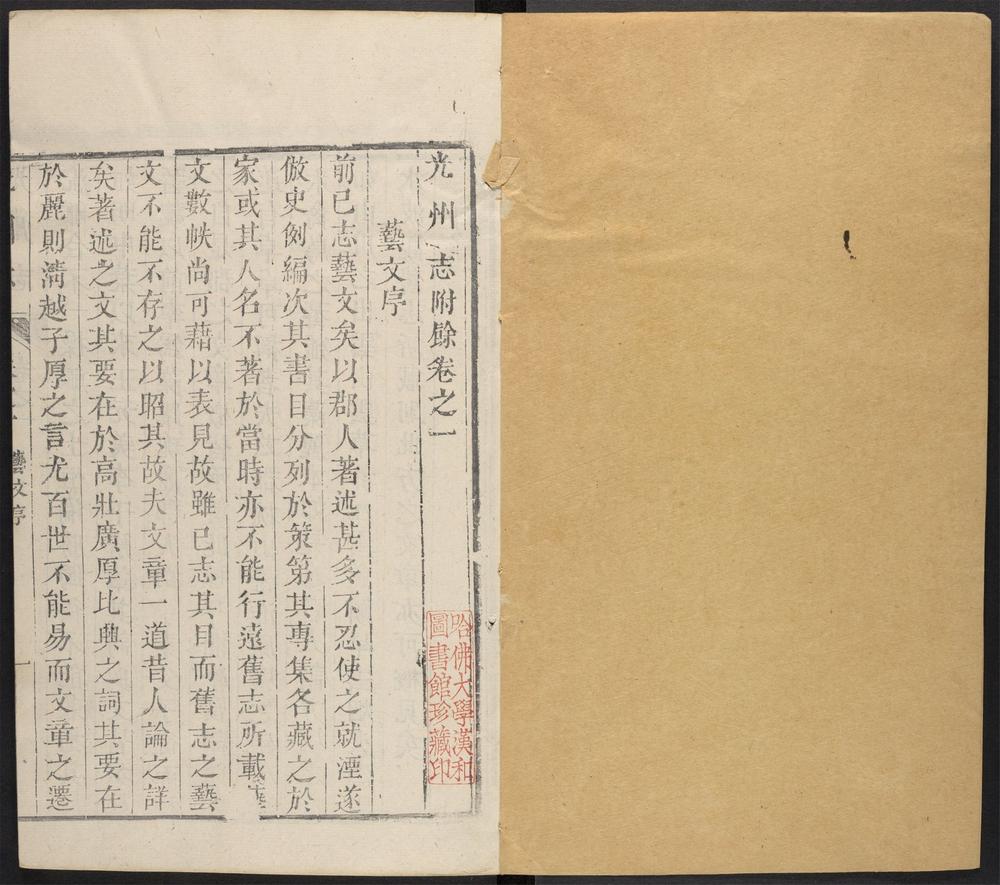 光州志附餘卷之一
藝文序
前已志藝文矣以郡人著述甚多不忍使之就湮遂
倣史例編次其書目分列於策第其專集各藏之於
家或其人名不著於當時亦不能行遠舊志所載
文數帙尚可藉以表見故雖已志其目而舊志之藝
文不能不存之以昭其故夫文章一道昔人論之詳
矣著述之文其要在於高壯廣厚比興之詞其要在
於麗則淸越子厚之言尤百世不能易而文章之遷
藝文序
一
哈佛大學漢和
圖書館珍藏印